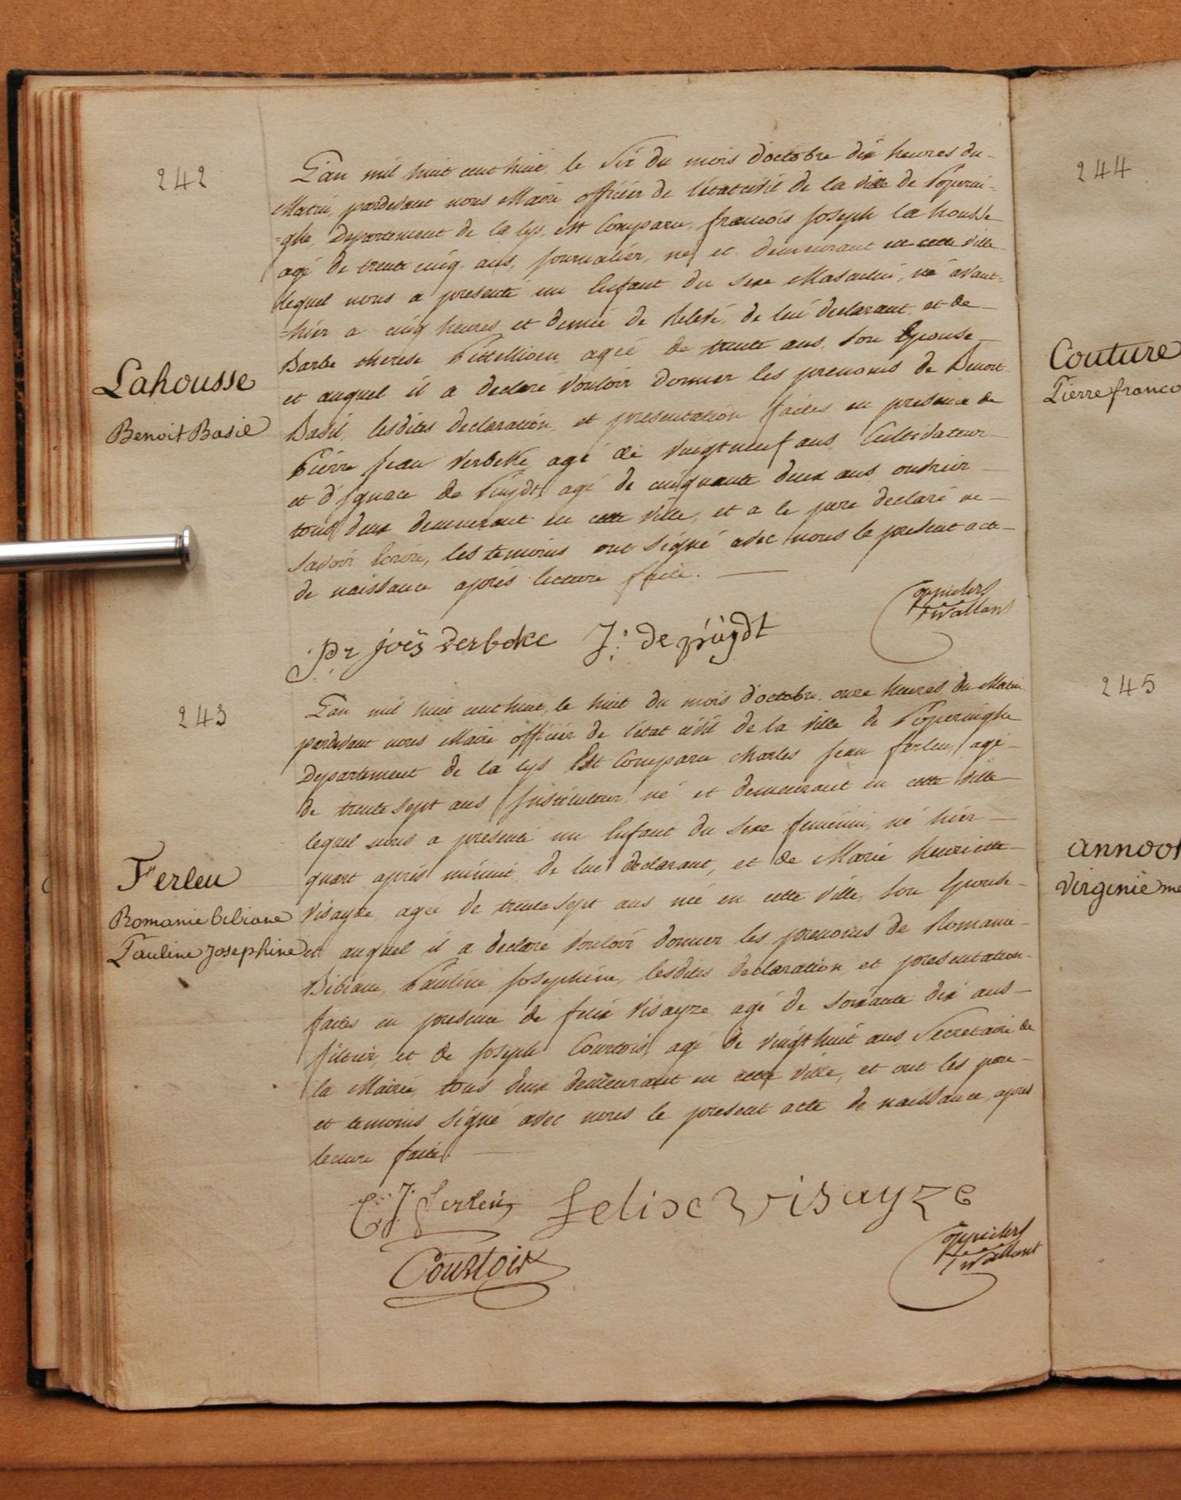 242
Lahousse
Benoit Basil
L'an mil huit cent huit, le six du mois d'octobre dix heures du
Matin, pardevant nous Maire officier de l'état civil de la ville de Poperin-
-ghe, Departement de la lys, est Comparu, francois Joseph Lahousse
agé de trente cinq ans, journalier, né et demeurant en cette ville
lequel nous a presenté un Enfant du sexe Masculin, né avant-
-hier a cinq heures et demie de Relevé, de lui declarant, et de
Barbe therese agée de trente ans, son Epouse
et auquel il a declaré vouloir donner les prenoms de Benoit
Basil, lesdites declaration et presentation faites en presence de
Pierre Jean Verbeke agé de vingt neuf ans Cultivateur
et d'Ignace de Puydt agé de cinquante deux ans ouvrier
tous deux demeurant en cette ville, et a le pere declaré ne
savoir Ecrire, les temoins ont signé avec nous le present acte
de naissance après lecture faite.
Pr joës verbeke J: de puÿdt
243
Ferleu
Romanie bibiane
Pauline Josephine
L'an mil huit cent huit, le huit du mois d'octobre onze heures du Matin
pardevant nous Maire officier de l'état civil de la ville de Poperinghe
Departement de la lys Est Comparu Charles Jean ferleu, agé
de trente sept ans Instituteur né et demeurant en cette ville
lequel nous a presenté un Enfant du sexe feminin, né hier
quart après minuit de lui declarant, et de Marie henriette
Visayze agée de trente sept ans née en cette ville, son Epouse
et auquel il a declaré vouloir donner les prenoms de Romanie
Bibiane, Pauline, Josephine, lesdites declaration et presentation
faites en presence de felix Visayze agé de soixante dix ans
filtier, et de Joseph Courtois, agé de vingt huit ans Secretaire de
la Mairie, tous deux demeurant en cette ville, et ont les pere
et temoins signé avec nous le present acte de naissance, après
lecture faite.
C: J: ferleu Felix visayze
Courtois
244
Couture
Pierre franco
245
annoot
Virginie me